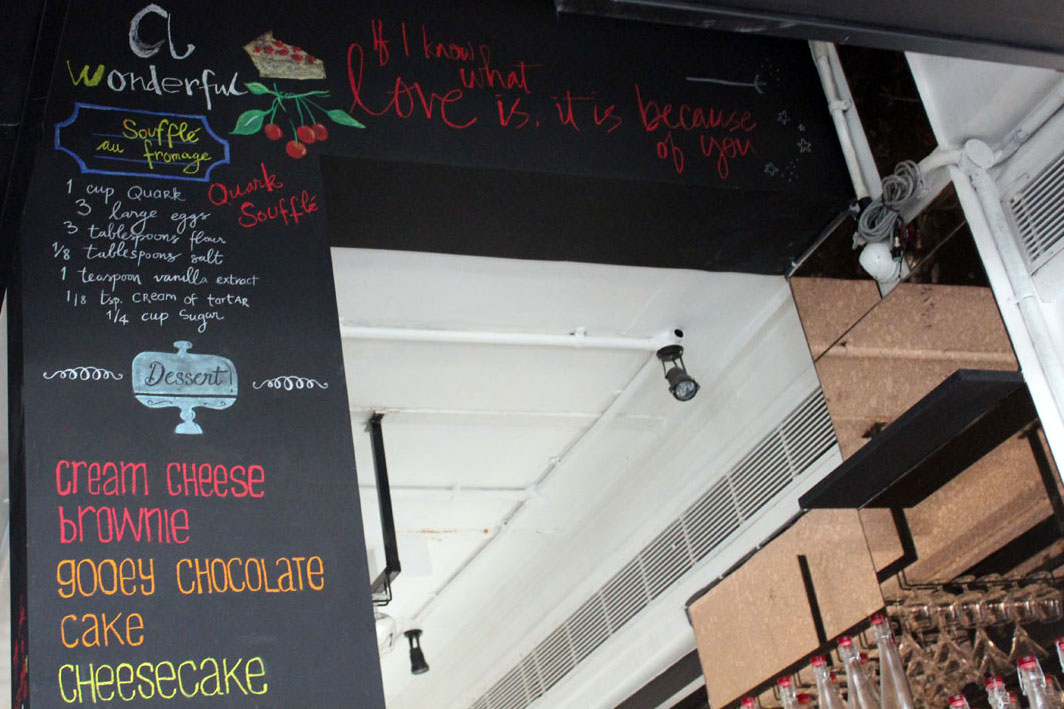 a
wonderful
Soufflé
au fromage
Quark
Soufflé
1 cup Quark
3 large eggs
3 tablespoons flour
1/8 tablespoons salt
1 teaspoon vanilla extract
1/8 tsp. cream of tartar
1/4 cup sugar
Dessert
cream cheese
brownie
gooey chocolate
cake
cheesecake
If I know
what
love is, it is because
of you